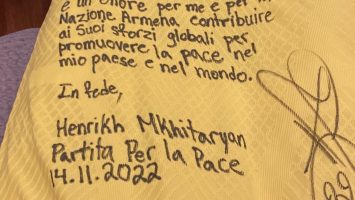 è un onore per me e per la
Nazione Armena contribuire
ai Suoi sforzi globali per
promuovere la pace nel
mio paese e nel mondo.
In fede,
Henrikh Mkhitaryan
Partita Per la Pace
14.11.2022